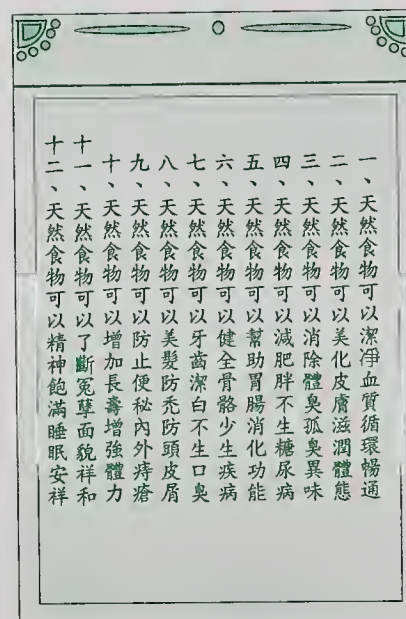 一、天然食物可以潔淨血質循環暢通
二、天然食物可以美化皮膚滋潤體態
三、天然食物可以消除體臭孤臭異味
四、天然食物可以減肥胖不生糖尿病
五、天然食物可以幫助胃腸消化功能
六、天然食物可以健全骨骼少生疾病
七、天然食物可以牙齒潔白不生口臭
八、天然食物可以美髮防禿防頭皮屑
九、天然食物可以防止便秘內外痔瘡
十、天然食物可以增加長壽增強體力
十一、天然食物可以了斷冤孽面貌祥和
十二、天然食物可以精神飽滿睡眠安祥